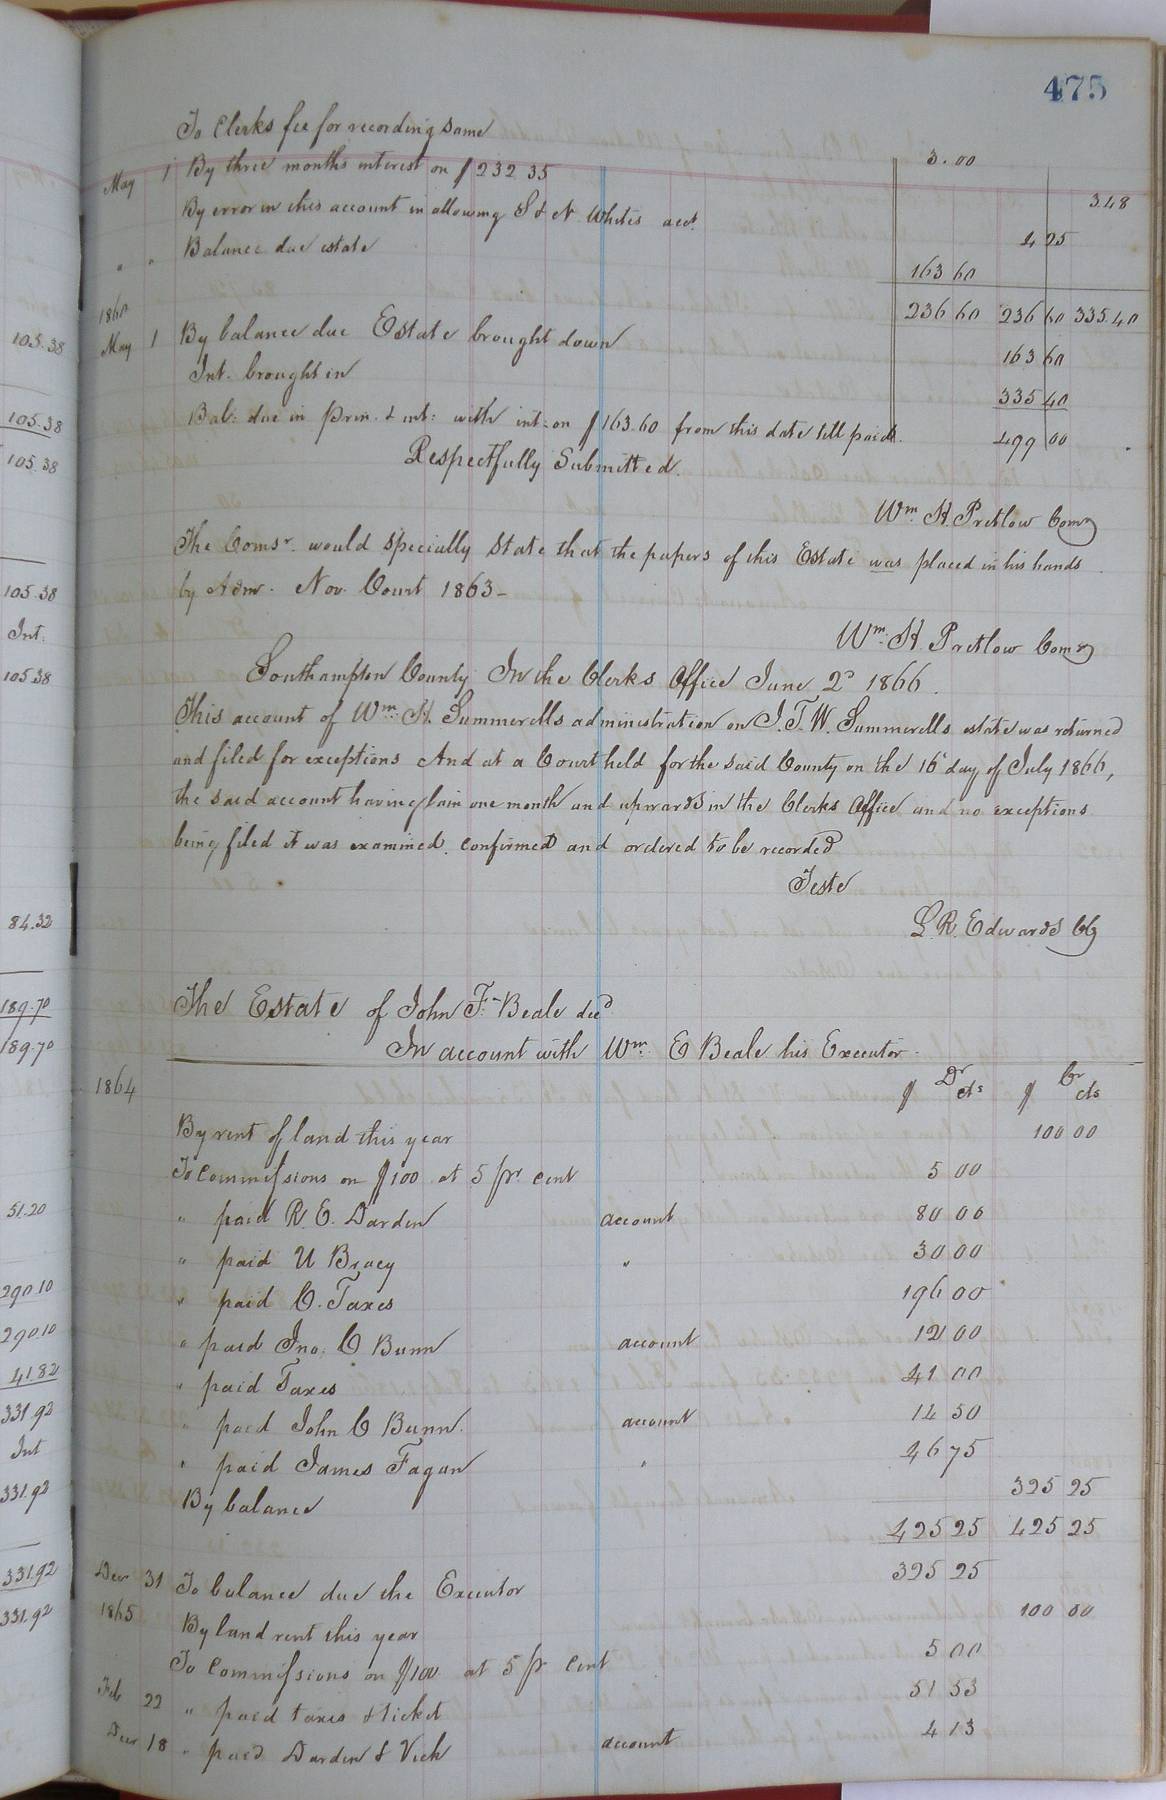 475
To Clerks fee for recording same 3.00
May 1 By three months interest on $232 35 3.48
By error in this account in allowing S & N Whites acct. 4 25
" " Balance due estate 163 60
236 60 236 60 335.40
1860
May 1 By balance due Estate brought down 163 60
Int. brought in 335 40
Bal: due in prin. & int: with int. on $163.60 from this date till paid. 499 00
Respectfully Submitted.
Wm. H. Pretlow Comr
The Comsr. would specially state that the papers of this Estate was placed in his hands
by Adm. Nov. Court 1863—
Wm. H. Pretlow Comr
Southampton County In the Clerks Office June 2d 1866.
This account of Wm. H. Summerells administration on J. T. W. Summerells estate was returned
and filed for exceptions And at a Court held for the said County on the 16 day of July 1866,
the said account having lain one month and upwards in the Clerks Office and no exceptions
being filed it was examined. confirmed and ordered to be recorded
Teste
L. R. Edwards Clk
The Estate of John F. Beale decd
In account with Wm. E Beale his Executor.
1864 $ Dr cts $ Cr cts
By rent of land this year 100 00
To commissions on $100 at 5 pr cent 5 00
" paid R. E. Darden account 80 00
" paid U Bracy " 30 00
" paid C. Taxes 196 00
" paid Jno. C Bunn account 12 00
" paid Taxes 41 00
" paid John C Bunn. account 14 50
" paid James Fagan " 46 75
By balance 325 25
425 25 425 25
Decr 31 To balance due the Executor 325 25
1865 By land rent this year 100 00
To Commissions on $100 at 5 pr cent 5 00
Feb 22 " paid taxes & ticket 51 53
Decr 18 " paid Darden & Vick account 4 13
105.38
105.38
105.38
105.38
Int:
105.38
84.32
189.70
189.70
51.20
290.10
290.10
41.82
331.92
Int
331.92
331.92
331.92